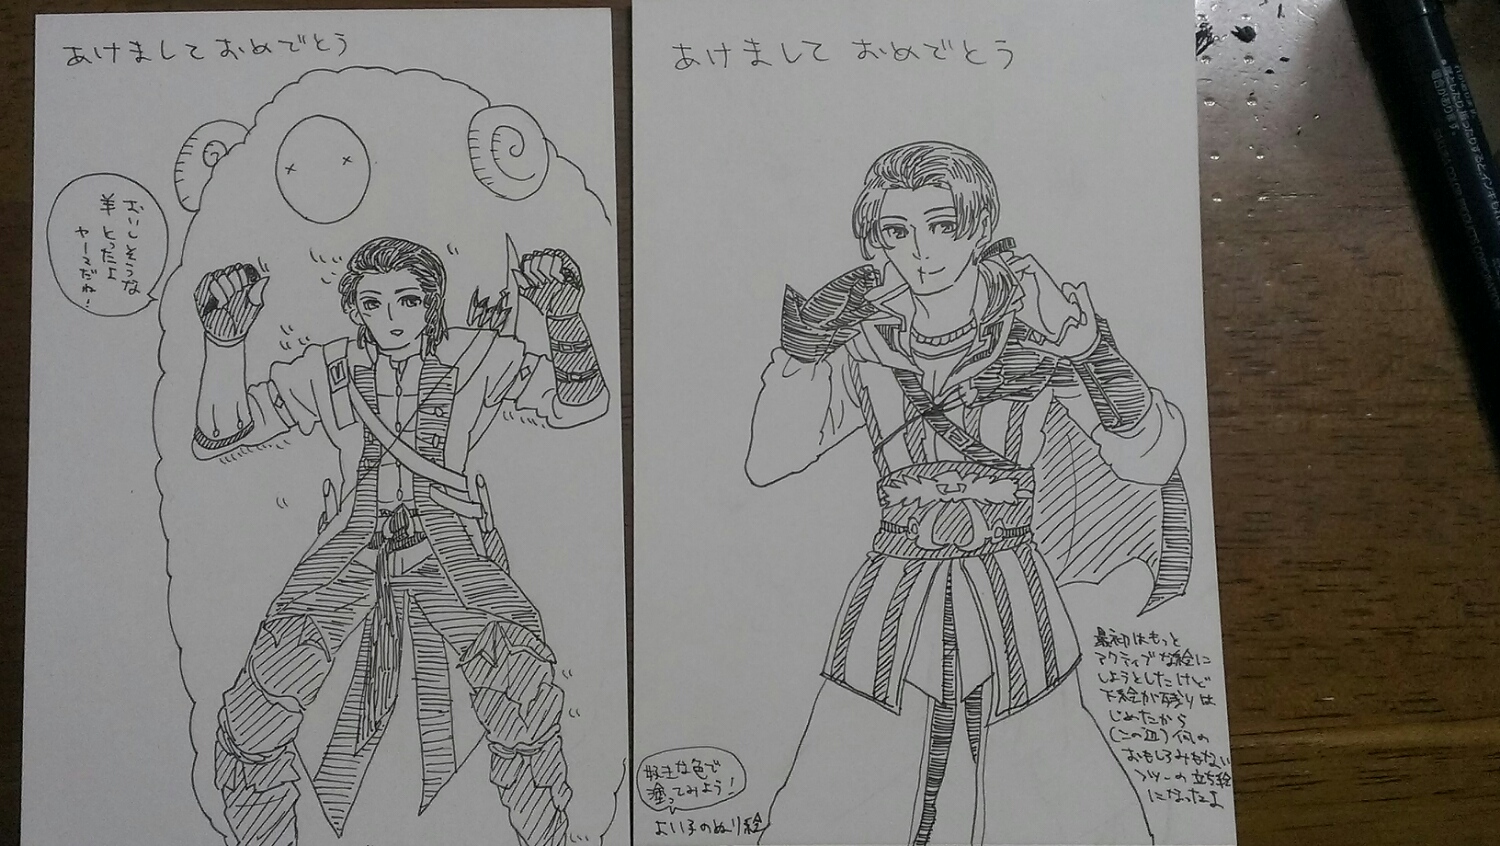 あけまして おめでとう
おいしそうな
羊 とったよ
ヤーマだね!
あけまして おめでとう
最初はもっと
アクティブな絵に
しようとしたけど
下絵が残りは
じめたから
何の
おもしろみもない
フツーの立ち絵
になったよ
好きな色で
塗ってみよう!
よい子のぬり絵